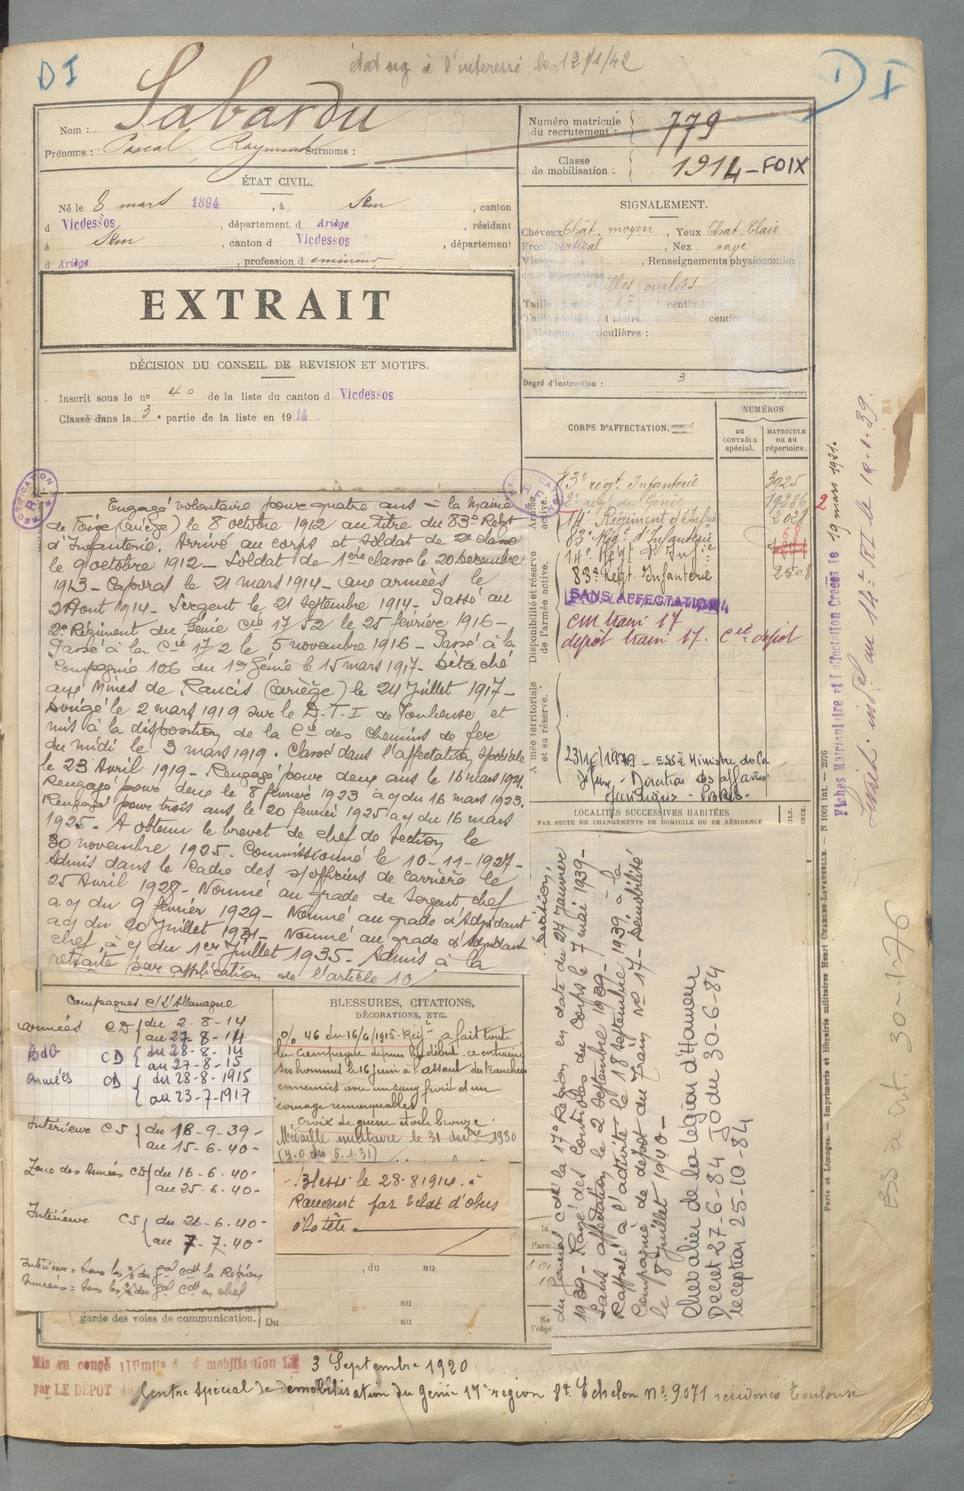 D I
état sig à l'interessé le 12/1/42
D I
Nom : Sabardu
Prénoms : Pascal, Raymond Surnoms :
Numéro matricule du recrutement : 779
Classe de mobilisation : 1914 - FOIX
ÉTAT CIVIL.
Né le 8 mars 1894, à Sem, canton
d Vicdessos, département d Ariège, résidant
à Sem, canton d Vicdessos, département
d Ariège, profession d mineur
SIGNALEMENT.
Cheveux Chât. moyen, Yeux Chat. Clair
Front vertical, Nez cave
Visage, Renseignements physionomiques
oreilles ourlées
Taille : 1 m. 67 centimètres
Taille 1 mètre centim
Marques particulières :
Degré d'instruction : 3
EXTRAIT
DÉCISION DU CONSEIL DE REVISION ET MOTIFS.
Inscrit sous le no 40 de la liste du canton d Vicdessos
Classé dans la 3e partie de la liste en 1914
CORPS D'AFFECTATION.
NUMÉROS
AU CONTRÔLE SPÉCIAL.
MATRICULE OU AU RÉPERTOIRE.
Armée active.
83e régt. Infanterie 3025
2e regt de Génie 19286
14e Régiment d'Infie 2028
Disponibilité et réserve de l'armée active.
83e Régt d'Infanterie
14e Régt d'Infie
83e Régt. Infanterie 2508
SANS AFFECTATION
cm train 17
depot train 17. Cie depot
Armée territoriale et sa réserve.
Direction des affaires
Juridiques - PARIS.
LOCALITÉS SUCCESSIVES HABITÉES
PAR SUITE DE CHANGEMENTS DE DOMICILE OU DE RÉSIDENCE
Engagé volontaire pour quatre ans à la Mairie
de Foix (Ariège) le 8 octobre 1912 au titre du 83e Régt
d'Infanterie. Arrivé au corps et soldat de 2e classe
le 9 octobre 1912 - Soldat de 1ère classe le 20 Decembre
1913 - Caporal le 21 mars 1914 - aux armées le
2 Aout 1914 - Sergent le 21 Septembre 1914 - Passé au
2e Régiment du Génie Cie 17 52 le 25 février 1916 -
Passé à la Cie 17 2 le 5 novembre 1916 - Passé à la
Compagnie 106 du 1er Génie le 15 mars 1917 - Détaché
aux Mines de Rancié (Ariège) le 24 Juillet 1917 -
Dirigé le 2 mars 1919 sur le D.T.I de Toulouse et
mis à la disposition de la Cie des Chemins de fer
du midi le 3 mars 1919. Classé dans l'affectation spéciale
le 23 Avril 1919 - Rengagé pour deux ans le 16 mars 1921
Rengagé pour deux le 8 février 1923 à c/ du 16 mars 1923.
Rengagé pour trois ans le 20 fevrier 1925 à c/ du 16 mars
1925 - A obtenu le brevet de chef de Section le
30 novembre 1925. Commissionné le 10-11-1927 -
Admis dans le Cadre des s/officiers de carrière le
25 Avril 1928 - Nommé au grade de Sergent chef
à c/ du 9 février 1929 - Nommé au grade d'Adjudant
à c/ du 20 Juillet 1931 - Nommé au grade d'Adjudant
chef à c/ du 1er Juillet 1935 - Admis à la
retraite par application de l'article 10
Décision
du Général Cdt la 17e Région en date du 27 Janvier
1939 - Rayé des Contrôles du Corps le 7 mai 1939 -
Sans affectation le 2 Septembre 1939 -
Rappelé à l'activité le 18 septembre 1939 à la
Compagnie de dépôt du Train No 17 - Démobilisé
le 8 Juillet 1940 -
Chevalier de la légion d'Honneur
Decret 27-6-84 JO du 30-6-84
reception 25-10-84
Campagnes c/ l'Allemagne
armées CD du 2-8-14
au 27-8-14
Bdo CD du 28-8-14
au 27-8-15
Armées CD du 28-8-1915
au 23-7-1917
Intérieur CS du 18-9-39-
au 15-6-40-
Zone des Armées CD du 16-6-40-
au 25-6-40-
Intérieur CS du 26-6-40-
au 7-7-40-
Intérieur = sous les o/ du gal cdt la Région
Armées = sous les o/ du gal cdt en chef
garde des voies de communication.
BLESSURES, CITATIONS,
DÉCORATIONS, ETC.
o/ 46 du 16/6/1915. Régt a fait toute
la Campagne depuis le début, a entrainé
ses hommes le 16 juin à l'assaut des tranchées
ennemies avec un sang froid et un
courage remarquables
Croix de guerre etoile bronze
Médaille militaire le 31 décbre 1930
(J.O. du 5.1.31)
Blessé le 28-8 1914 à
Raucourt par Eclat d'obus
à la tête
, du au
au
Du au
Fiches Matriculaire et d'affectation Créées le 19 mars 1931.
Paris et Limoges. - Imprimerie et librairie militaires Henri CHARLES-LAVAUZELLE. - N 1001 int. - 3026
BS à int. 30-1-76
Mis en congé illimité de démobilisation LE 3 Septembre 1920
par LE DEPOT du Centre spécial de démobilisation du Génie 17e région 8e Echelon No 9071 résidence Toulouse